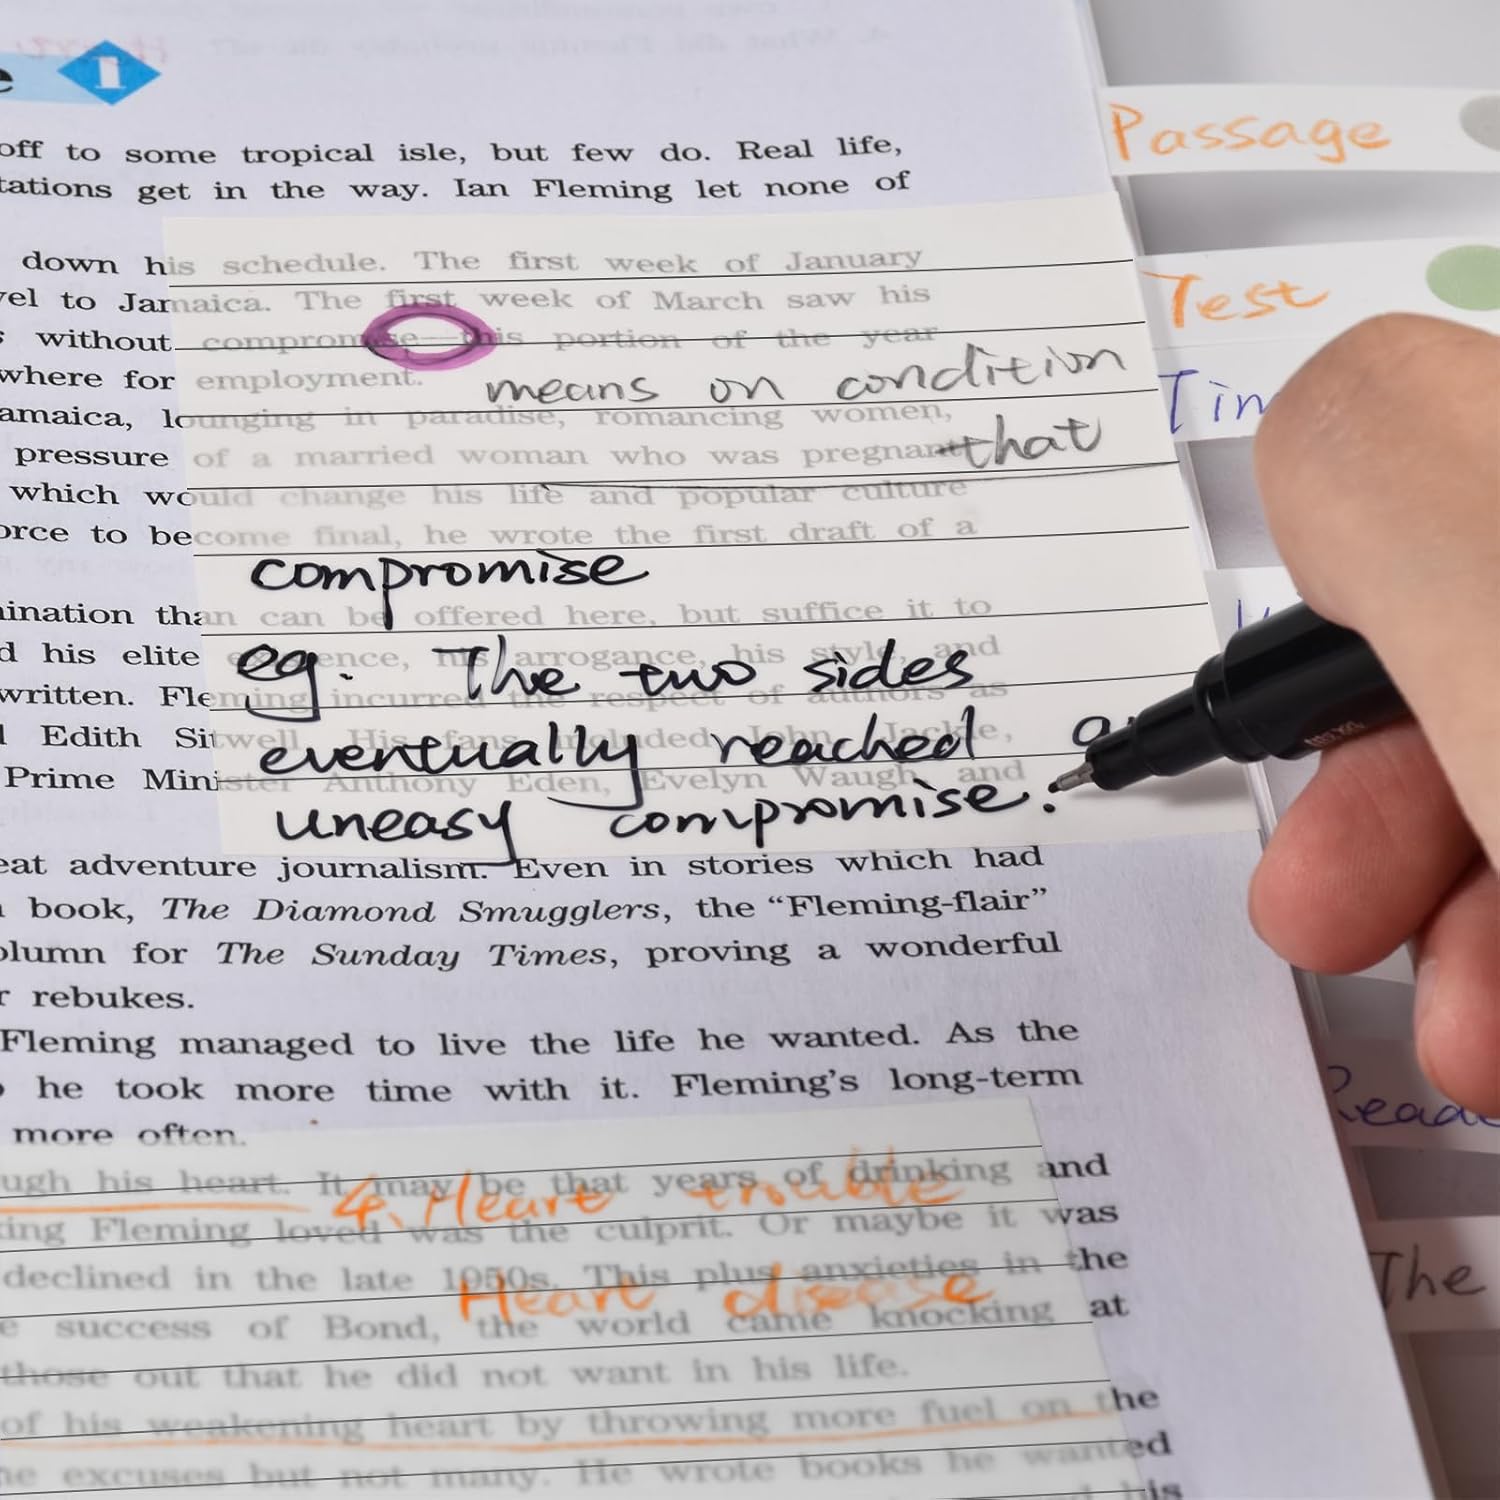 e 1
off to some tropical isle, but few do. Real life,
tations get in the way. Ian Fleming let none of
down his schedule. The first week of January
vel to Jamaica. The first week of March saw his
s without compromise—this portion of the year
where for employment.
means on condition
amaica, lounging in paradise, romancing women,
that
pressure of a married woman who was pregnant
which would change his life and popular culture
orce to become final, he wrote the first draft of a
compromise
mination than can be offered here, but suffice it to
eg. The two sides
d his elite his arrogance, his style, and
written. Fleming incurred the respect of authors as
eventually reached a
l Edith Sitwell. His fans included John
Prime Minister Anthony Eden, Evelyn Waugh, and
uneasy compromise.
eat adventure journalism. Even in stories which had
book, The Diamond Smugglers, the “Fleming-flair”
olumn for The Sunday Times, proving a wonderful
r rebukes.
Fleming managed to live the life he wanted. As the
he took more time with it. Fleming’s long-term
more often.
ugh his heart. It may be that years of drinking and
4. Heart trouble
ing Fleming loved was the culprit. Or maybe it was
declined in the late 1950s. This plus anxieties in the
Heart disease
e success of Bond, the world came knocking at
those out that he did not want in his life.
of his weakening heart by throwing more fuel on the
he excuses but not many. He wrote books he wanted
his
Passage
Test
Tim
Read
The